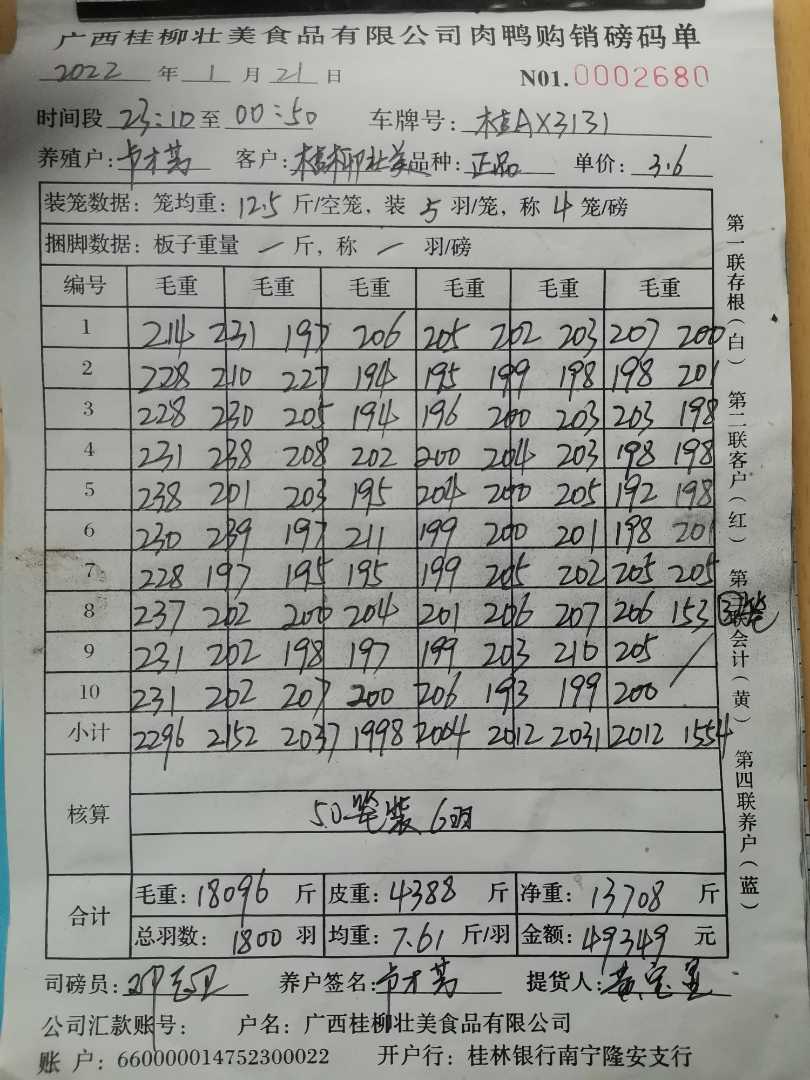 广西桂柳壮美食品有限公司肉鸭购销磅码单
2022 年 1 月 21 日 N01.0002680
时间段 23:10 至 00:50 车牌号: 桂AX3131
养殖户: 客户: 桂柳壮美 品种: 正品 单价: 3.6
装笼数据: 笼均重: 12.5 斤/空笼, 装 5 羽/笼, 称 4 笼/磅
捆脚数据: 板子重量 一 斤, 称 一 羽/磅
编号 毛重 毛重 毛重 毛重 毛重 毛重
1 214 231 197 206 205 202 203 207 200
2 228 210 227 194 195 199 198 198 201
3 228 230 205 194 196 200 203 203 198
4 231 238 208 202 200 204 203 198 198
5 238 201 203 195 204 200 205 192 198
6 230 239 197 211 199 200 201 198 201
7 228 197 195 195 199 205 202 205 205
8 237 202 200 204 201 206 207 206 153 ③笼
9 231 202 198 197 199 203 210 205
10 231 202 207 200 206 193 199 200
小计 2296 2152 2037 1998 2004 2012 2031 2012 1554
核算 50笼装6羽
合计 毛重: 18096 斤 皮重: 4388 斤 净重: 13708 斤
总羽数: 1800 羽 均重: 7.61 斤/羽 金额: 49349 元
司磅员: 养户签名: 提货人:
公司汇款账号: 户名: 广西桂柳壮美食品有限公司
账 户: 660000014752300022 开户行: 桂林银行南宁隆安支行
第一联存根(白) 第二联客户(红) 第三联会计(黄) 第四联养户(蓝)